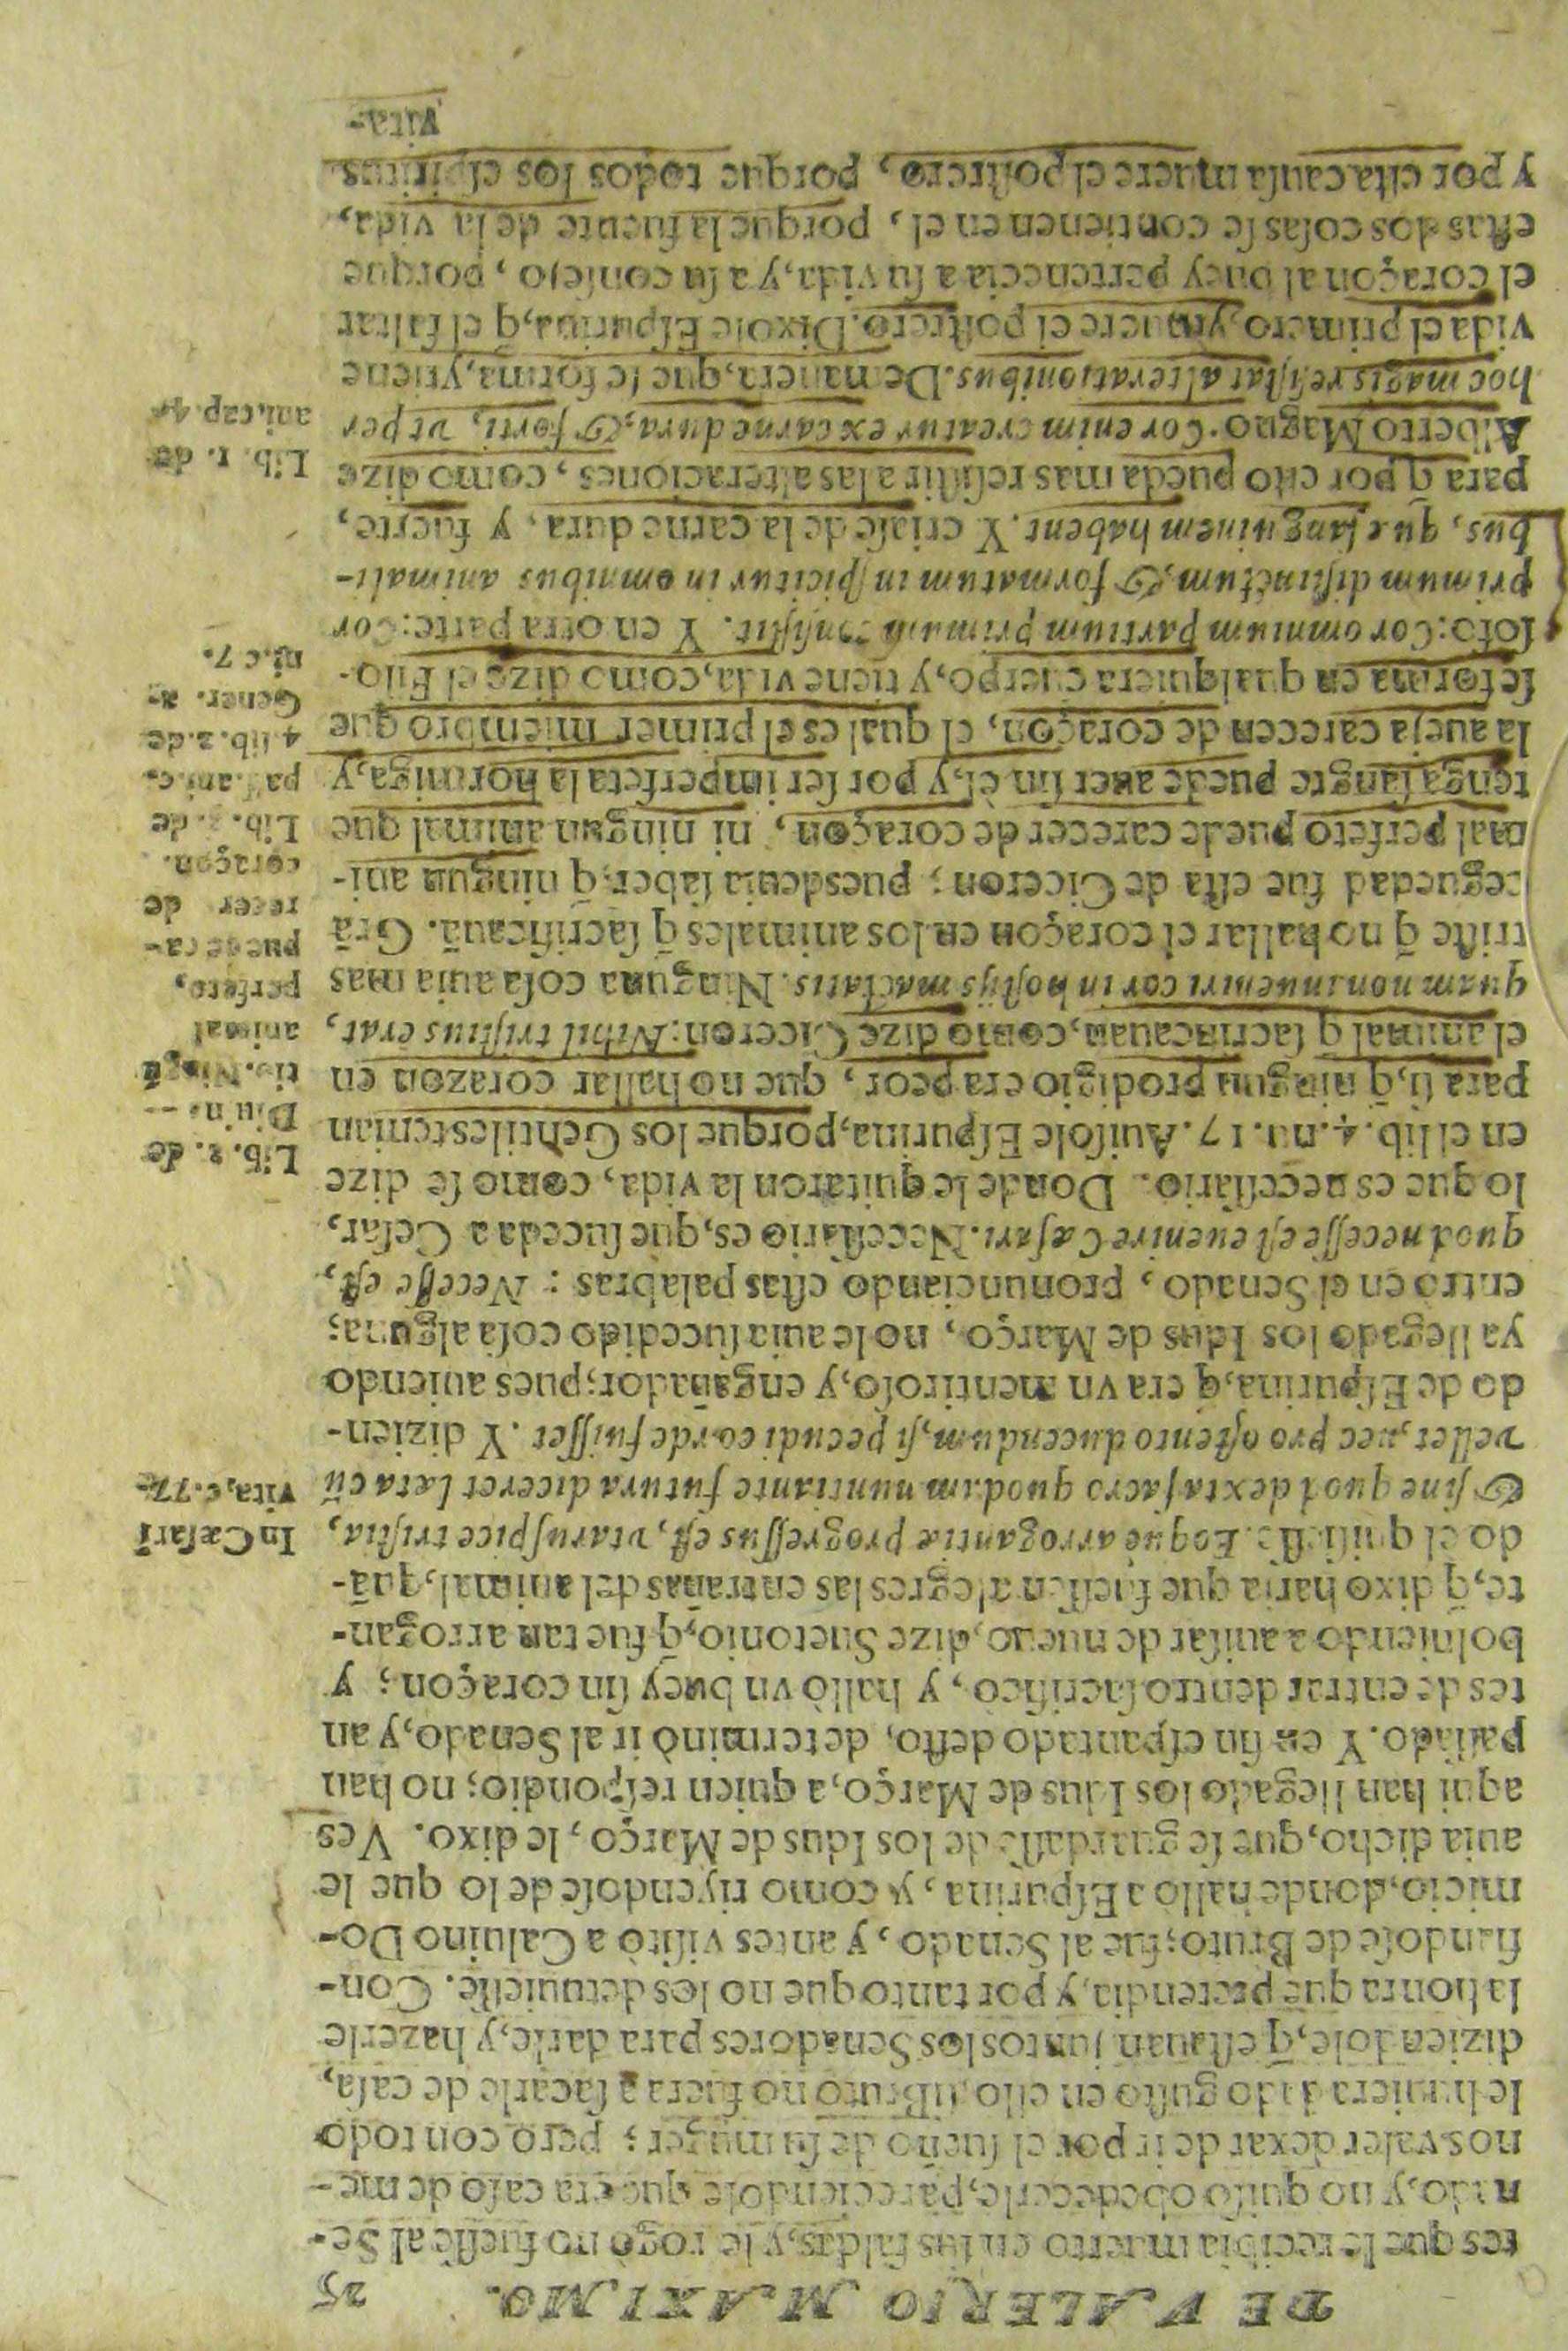 DE VALERIO MAXIMO. 25
tes que le recibia muerto en sus faldas, y le rogò no fuesse al Se-
nado, y no quiso obedecerle, pareciendole que era caso de me-
nos valer dexar de ir por el sueño de su muger; pero con todo
le huuiera dado gusto en ello, si Bruto no fuera a sacarle de casa,
diziendole, q̃ estauan juntos los Senadores para darle, y hazerle
la honra que pretendia, y por tanto que no les detuuiesse. Con-
fiandose de Bruto; fue al Senado, y antes visitò a Caluino Do-
micio, donde hallo a Espurina, y como riyendose de lo que le
auia dicho, que se guardasse de los Idus de Março, le dixo. Ves
aqui han llegado los Idus de Março, a quien respondio; no han
passado. Y en fin espantado desto, determinò ir al Senado, y an
tes de entrar dentro sacrificò, y hallò vn buey sin coraçon; y
bolniendo a auisar de nueuo, dize Suetonio, q̃ fue tan arrogan-
te, q̃ dixo haria que fuessen alegres las entrañas del animal, quā-
do el quisiesse. Eoque arrogantiæ progressus est, vt aruspice tristia,
& sine quodam exta sacro quodam nuntiante futura diceret læta cū
vellet, nec pro ostento ducendum, si pecudi cor defuisset. Y dizien-
do de Espurina, q̃ era vn mentiroso, y engañador; pues auiendo
ya llegado los Idus de Março, no le auia sucedido cosa alguna;
entrò en el Senado, pronunciando estas palabras: Necesse est,
quod necesse est euenire Cæsari. Necessario es, que suceda a Cesar,
lo que es necessario. Donde le quitaron la vida, como se dize
en el lib. 4. nu. 17. Auisole Espurina, porque los Gentiles tenian
para si, q̃ ningun prodigio era peor, que no hallar corazon en
el animal q̃ sacrificauan, como dize Ciceron: Nihil tristius erat,
quam non inueniri cor in hostijs mactatis. Ninguna cosa auia mas
triste q̃ no hallar el coraçon en los animales q̃ sacrificauā. Grā
ceguedad fue esta de Ciceron; pues deuia saber, q̃ ningun ani-
mal perfeto puede carecer de coraçon, ni ningun animal que
tenga sangre puede auer sin èl, y por ser imperfeta la hormiga, y
la aueja carecen de coraçon, el qual es el primer miembro que
se forma en qualquiera cuerpo, y tiene vida, como dize el Filo-
sofo: Cor omnium partium primum consistit. Y en otra parte: Cor
primum distinctum, & formatum inspicitur in omnibus animali-
bus, que sanguinem habent. Y criase de la carne dura, y fuerte,
para q̃ por esto pueda mas resistir a las alteraciones, como dize
Alberto Magno. Cor enim creatur ex carne dura, & forti, vt per
hoc magis resistat alterationibus. De manera, que se forma, y tiene
vida el primero, y muere el postrero. Dixole Espurina, q̃ el faltar
el coraçon al buey pertenecia a su vida, y a su consejo, porque
estas dos cosas se contienen en el, porque la fuente de la vida,
y por esta causa muere el postrero, porque todos los espiritus
vita-
In Cæsari
vita, c. 77.
Lib. 2. de
Diuin.
tio. Ningū
animal
perfeto,
puede ca-
recer de
coraçon.
Lib. 3. de
par. ani. c.
4. lib. 2. de
Gener. a-
ni. c. 7.
Lib. 1. de
ani. cap. 4.